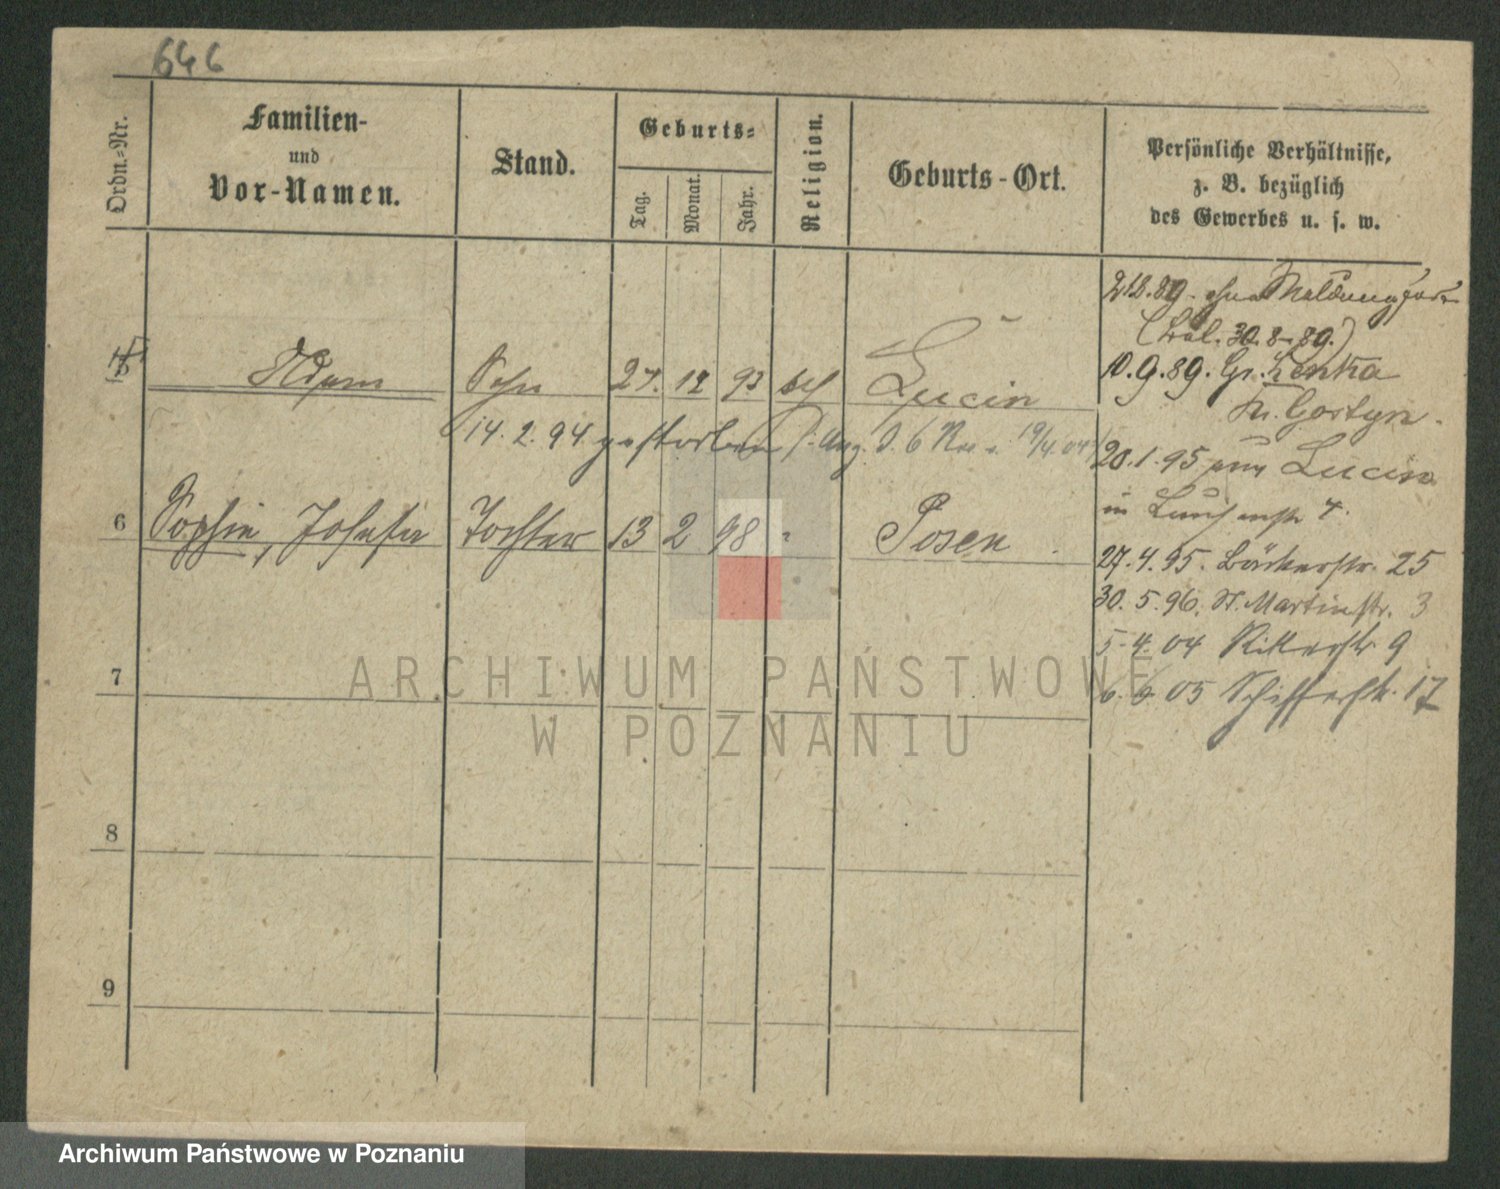 646
Ordn.-Nr.
Familien-
und
Vor-Namen.
Stand.
Geburts-
Tag.
Monat.
Jahr.
Religion.
Geburts-Ort.
Persönliche Verhältnisse,
z. B. bezüglich
des Gewerbes u. s. w.
5 Adam Sohn 27. 12 93 kth Lucin
14. 2. 94 gestorben
6 Sophie, Josefa Tochter 13 2 98 " Posen
7
8
9
21.8.89. ohne Meldung fort
30.8.89.)
10.9.89. Gr. Lenka
Kr. Gostyn.
20.1.95 von Lucin
in 4.
27.4.95. Bäckerstr. 25
30.5.96. St. Martinstr. 3
5.4.04 Ritterstr 9
6.6.05 Schifferstr. 17
ARCHIWUM PAŃSTWOWE
W POZNANIU
Archiwum Państwowe w Poznaniu